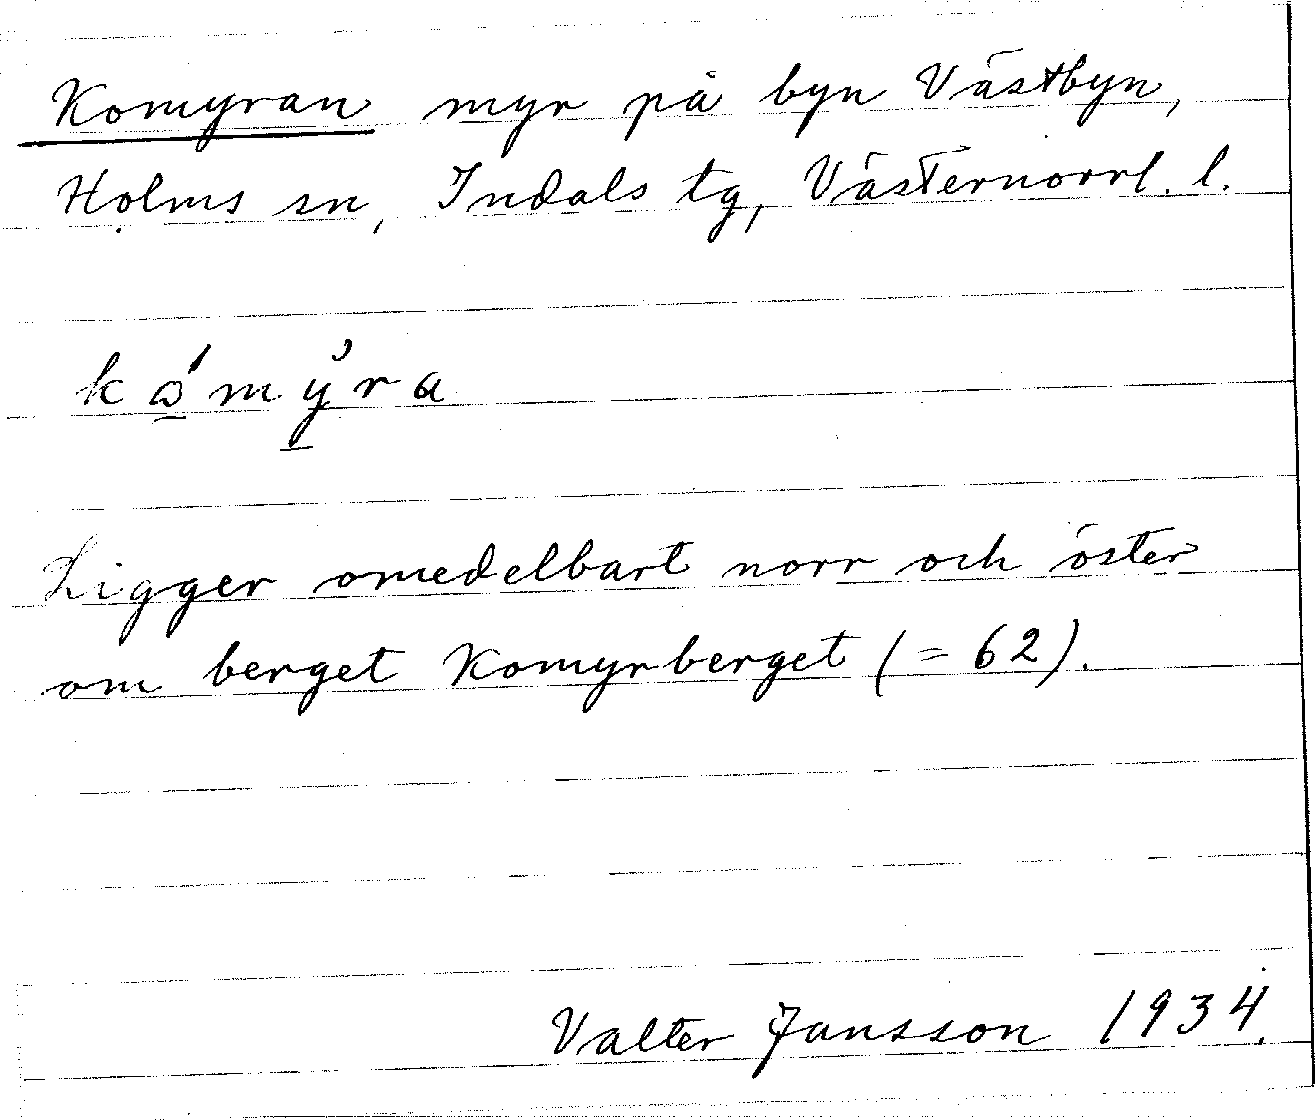 Komyran myr på byn Västbyn,
Holms sn, Indals tg, Västernorrl. l.
Ligger omedelbart norr och öster
om berget Komyrberget (= 62).
Valter Jansson 1934.